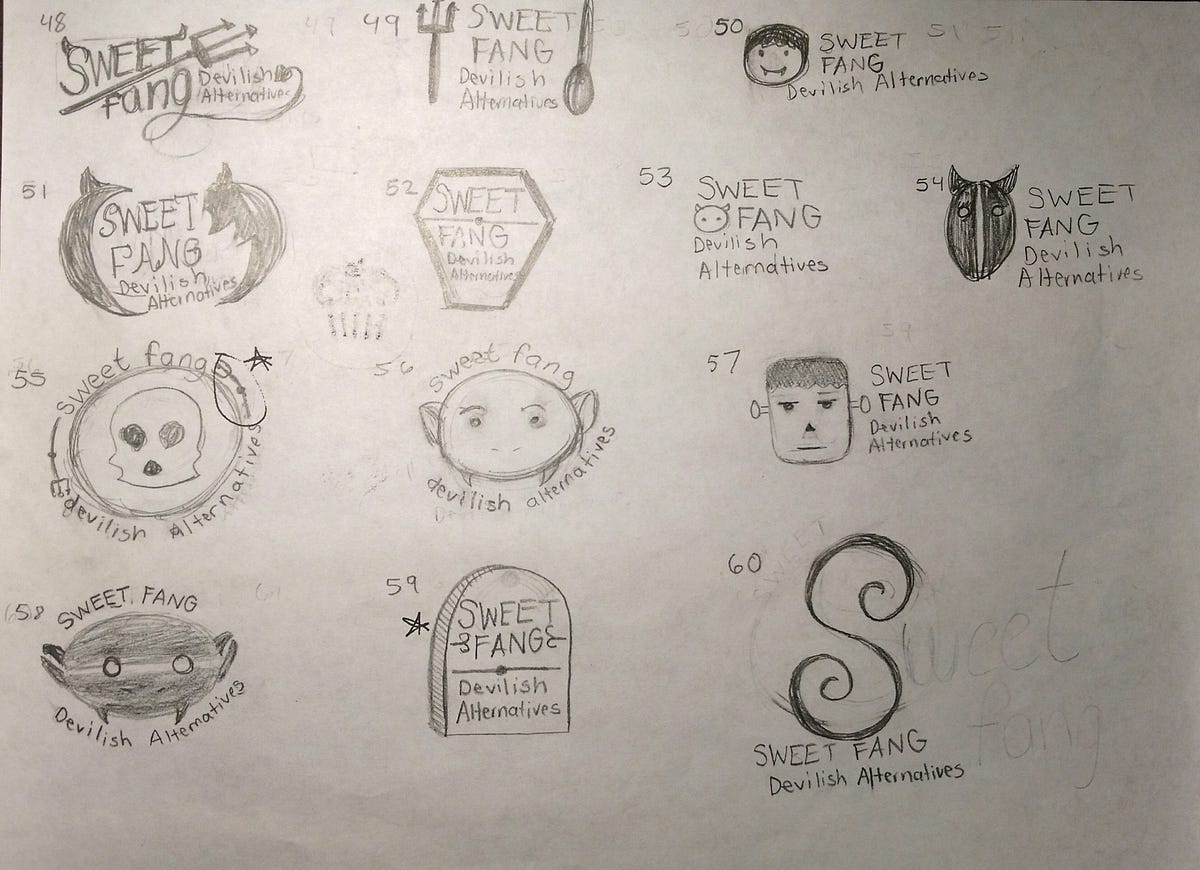 48
SWEET
fang
Devilish
Alternatives
49
SWEET
FANG
Devilish
Alternatives
50
SWEET
FANG
Devilish Alternatives
51
SWEET
FANG
Devilish
Alternatives
52
SWEET
FANG
Devilish
Alternatives
53
SWEET
FANG
Devilish
Alternatives
54
SWEET
FANG
Devilish
Alternatives
55
sweet fang
devilish Alternatives
56
sweet fang
devilish alternatives
57
SWEET
FANG
Devilish
Alternatives
58
SWEET FANG
Devilish Alternatives
59
SWEET
FANG
Devilish
Alternatives
60
S
Sweet
fang
SWEET FANG
Devilish Alternatives